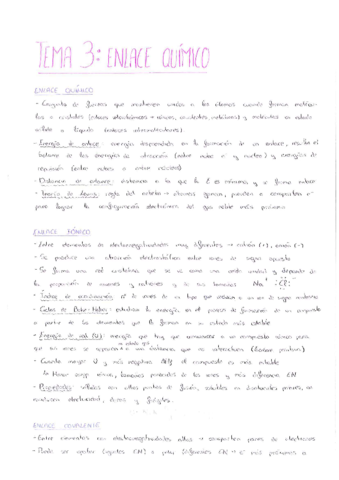 TEMA 3: ENLACE QUÍMICO
ENLACE QUÍMICO
- Conjunto de fuerzas que mantienen unidos a los átomos cuando forman moléculas
o cristales (enlaces interatómicos → iónicos, covalentes, metálicos) y moléculas en estado
sólido o líquido (enlaces intermoleculares).
- Energía de enlace: energía desprendida en la formación de un enlace, resulta el
balance de las energías de atracción (entre nubes e- y núcleos) y energías de
repulsión (entre nubes o entre núcleos)
- Distancia de enlace: distancia a la que la E es mínima, y se forma enlace
- regla del octeto → átomos ganan, pierden o comparten e-
para lograr la configuración electrónica del gas noble más próximo
ENLACE IÓNICO
- Entre elementos de electronegatividades muy diferentes → catión (+), anión (-)
- Se produce una atracción electrostática entre iones de signo opuesto
- Se forma una red cristalina que se ve como una celda unidad y depende de
la proporción de aniones y cationes y de los tamaños Na+ :Cl:-
- Índice de coordinación: nº de iones de un tipo que rodean a un ion de signo contrario
- Ciclo de Born-Haber: estudiar la energía en el proceso de formación de un compuesto
a partir de los elementos que lo forman en su estado más estable
- Energía de red (U): energía que hay que comunicar a un compuesto iónico para
que sus iones se separen a una distancia que no interactúen (siempre positiva)
- Cuanto mayor U y más negativa el compuesto es más estable
- Propiedades: sólidos con altos puntos de fusión, solubles en disolventes polares, no
conducen electricidad, duros y frágiles.
ENLACE COVALENTE
- Entre elementos con electronegatividades altas → comparten pares de electrones
- Puede ser apolar (iguales EN) o polar (diferentes EN → e- más próximos a